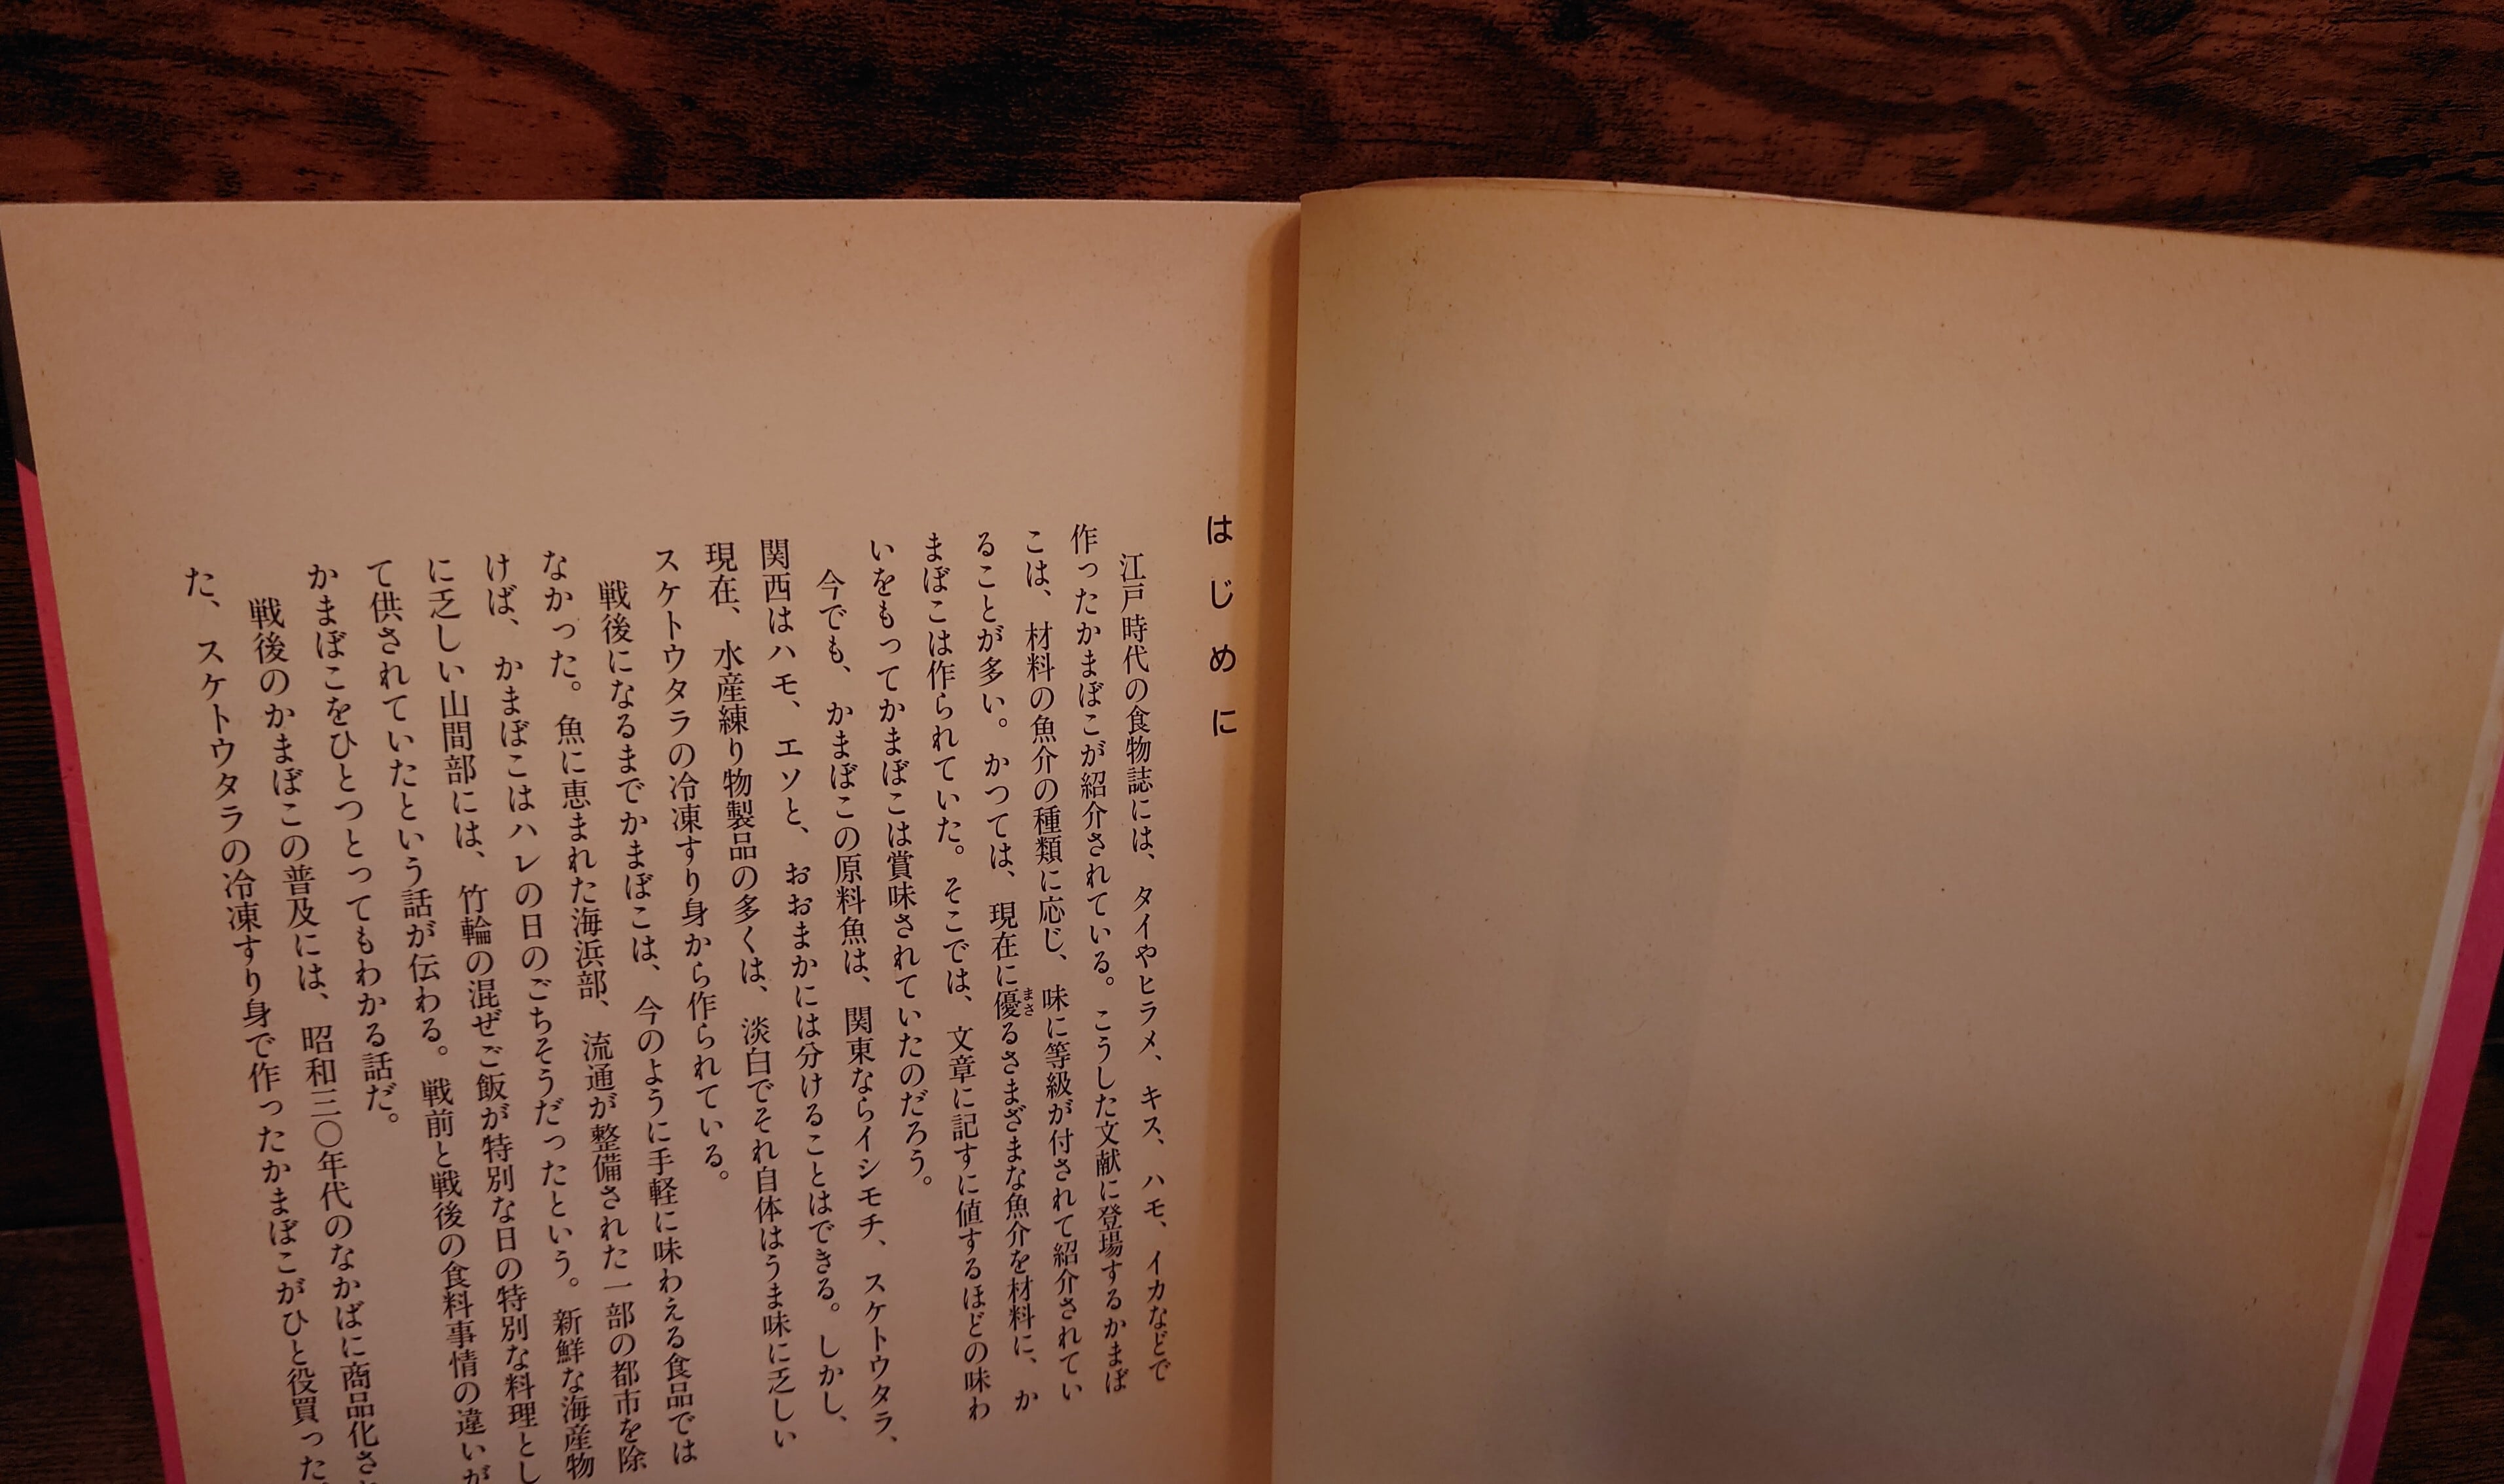 はじめに
江戸時代の食物誌には、タイやヒラメ、キス、ハモ、イカなどで
作ったかまぼこが紹介されている。こうした文献に登場するかまぼ
こは、材料の魚介の種類に応じ、味に等級が付されて紹介されてい
ることが多い。かつては、現在に優るさまざまな魚介を材料に、か
まさ
まぼこは作られていた。そこでは、文章に記すに値するほどの味わ
いをもってかまぼこは賞味されていたのだろう。
今でも、かまぼこの原料魚は、関東ならイシモチ、スケトウタラ、
関西はハモ、エソと、おおまかには分けることはできる。しかし、
現在、水産練り物製品の多くは、淡白でそれ自体はうま味に乏しい
スケトウタラの冷凍すり身から作られている。
戦後になるまでかまぼこは、今のように手軽に味わえる食品では
なかった。魚に恵まれた海浜部、流通が整備された一部の都市を除
けば、かまぼこはハレの日のごちそうだったという。新鮮な海産物
に乏しい山間部には、竹輪の混ぜご飯が特別な日の特別な料理とし
て供されていたという話が伝わる。戦前と戦後の食料事情の違いが
かまぼこをひとつとってもわかる話だ。
戦後のかまぼこの普及には、昭和三〇年代のなかばに商品化さ
た、スケトウタラの冷凍すり身で作ったかまぼこがひと役買った